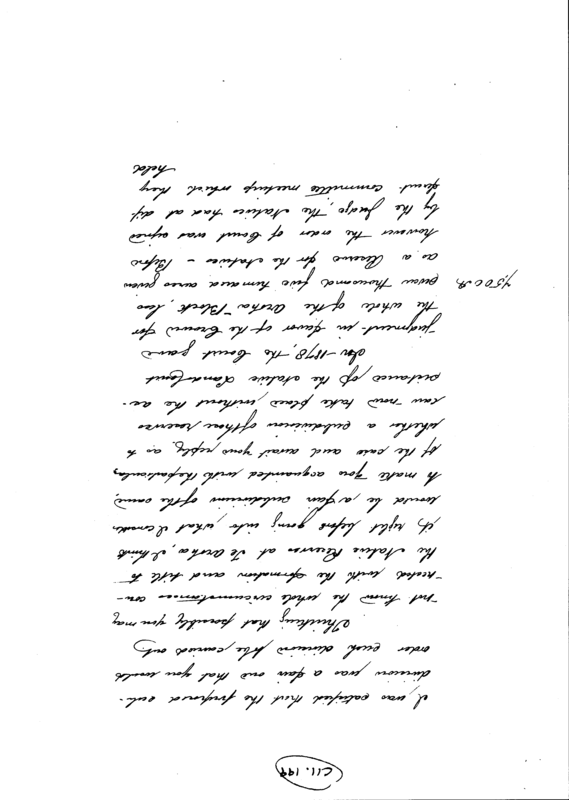 C11.199
I was satisfied that the proposed sub-
division was a fair one that you would
order such division to be carried out
Thinking that possibly you may
not know the whole circumstances con-
nected with the formation and title to
the Native Reserves at Te Aroha, I think
it right before going into, what I consider
would be, a fair subdivision of the same,
to make you acquainted with the particulars
of the case and await your reply as to
whether a subdivision of these reserves
can now take place, without the as-
sistance of the Native Land Court
In 1878, the Court gave
judgment in favor of the Crown for
the whole of the Aroha Block, less
seven thousand five hundred acres given
7,500 A.
as a Reserve for the Natives - Before
however the order of Court was signed
by the Judge, the Natives had at dif-
ferent Committee meetings which they
held